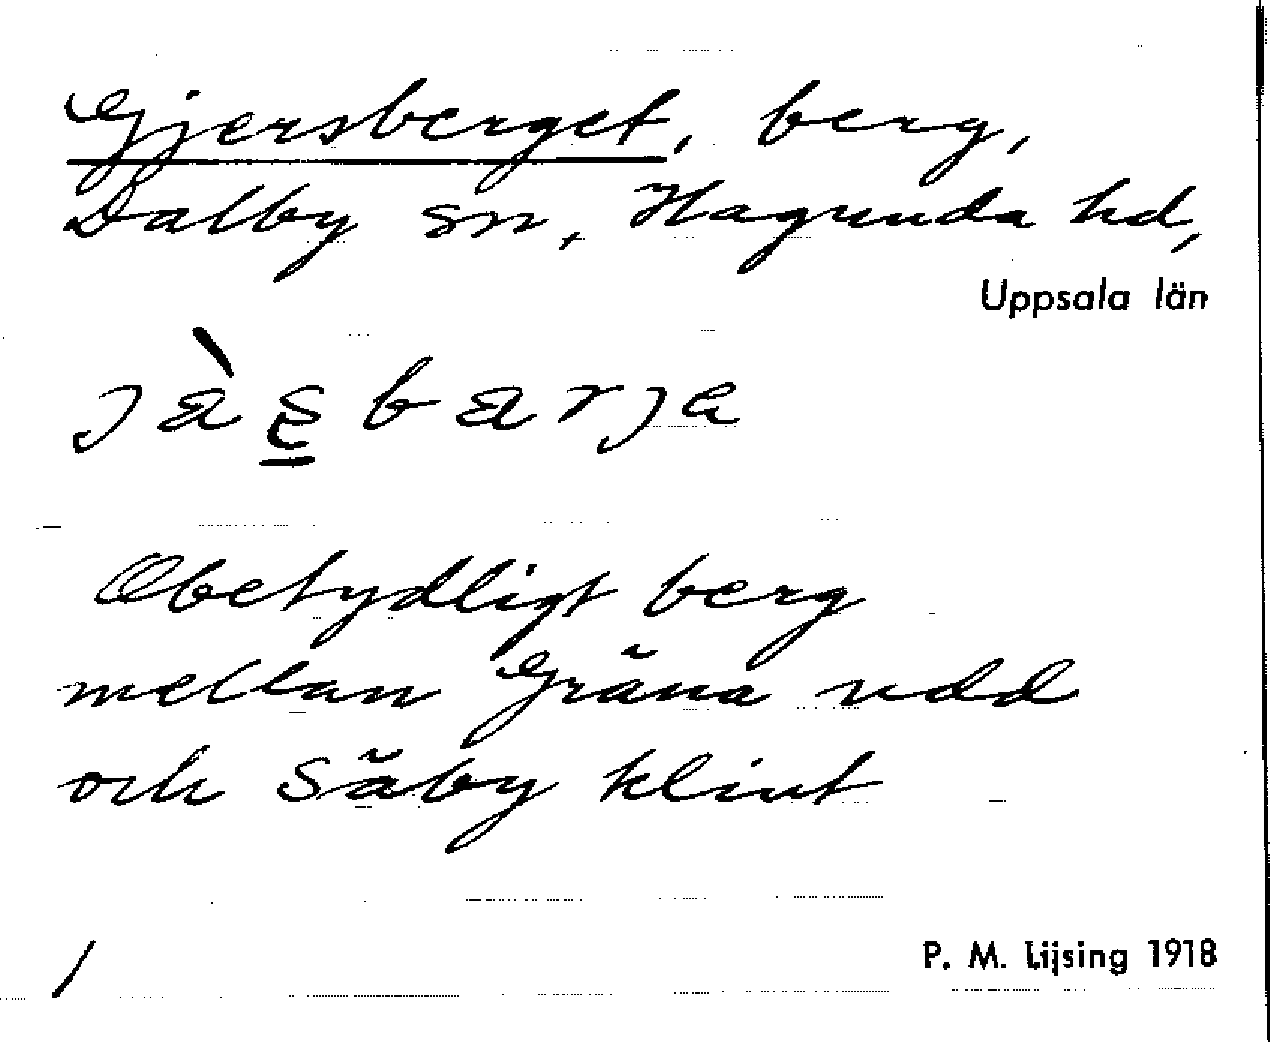 Gjersberget, berg,
Dalby sn, Hagunda hd,
Uppsala län
Obetydligt berg
mellan Gräna udd
och Säby klint
P. M. Lijsing 1918